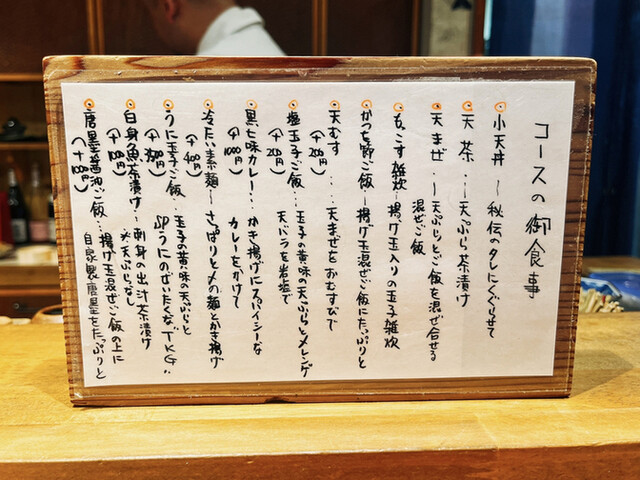 コースの御食事
小天丼 ― 秘伝のタレにくぐらせて
天茶 … ―天ぷら茶漬け
天まぜ … ―天ぷらとご飯を混ぜ合せる
混ぜご飯
もっこす雑炊―揚げ玉入りの玉子雑炊
かつを節ご飯―揚げ玉混ぜご飯にたっぷりと
天むす … 天まぜをおむすびで
(+200円)
塩玉子ご飯…玉子の黄味の天ぷらとメレンゲ
(+200円)
天バラを岩塩で
黒七味カレー…かき揚げにスパイシーな
(+1000円)
カレーをかけて
冷たい素麺―さっぱりと〆の麺とかき揚げ
(+400円)
うに玉子ご飯…玉子の黄味の天ぷらと
SPうにのぜいたくな"TKG"
白身魚茶漬け…刺身の出汁茶漬け
(+1000円)
※天ぷらなし
唐墨醤油ご飯…揚げ玉混ぜご飯の上に
自家製唐墨をたっぷりと